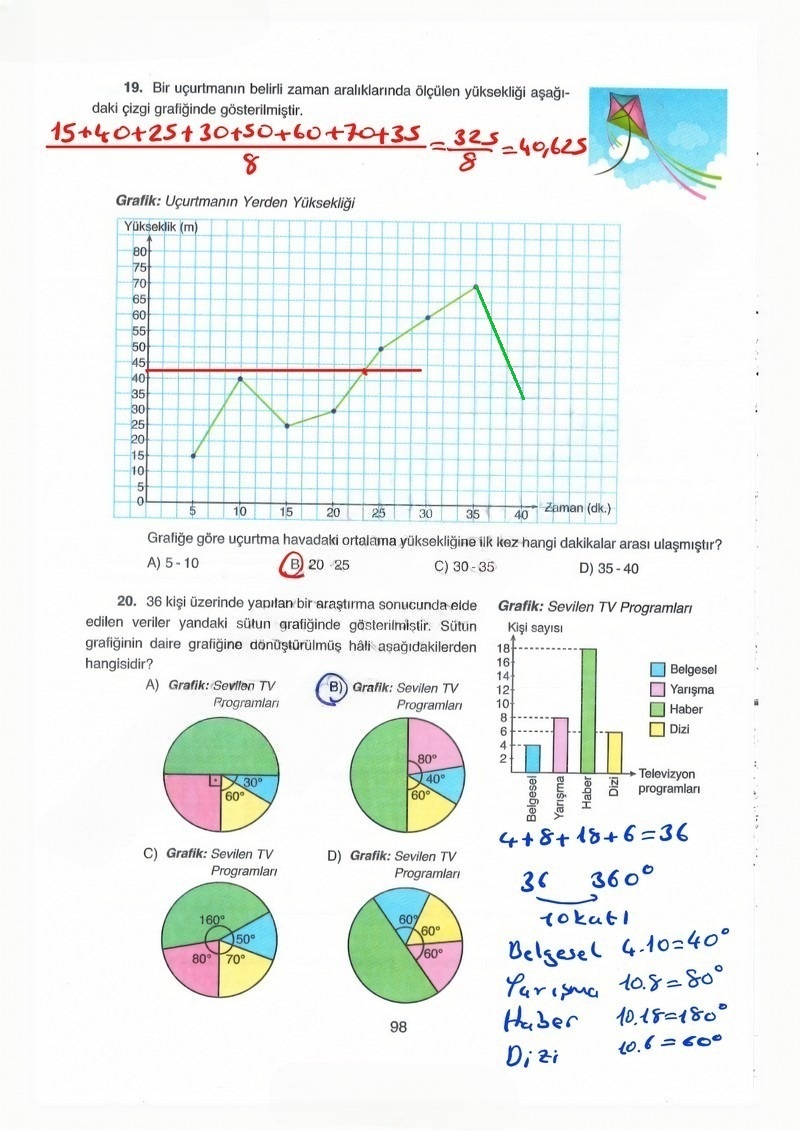 19. Bir uçurtmanın belirli zaman aralıklarında ölçülen yüksekliği aşağı-
daki çizgi grafiğinde gösterilmiştir.
15+40+25+30+50+60+70+35
8
=
325
8
=40,625
Grafik: Uçurtmanın Yerden Yüksekliği
Yükseklik (m)
80
75
70
65
60
55
50
45
40
35
30
25
20
15
10
5
0
5 10 15 20 25 30 35 40 Zaman (dk.)
Grafiğe göre uçurtma havadaki ortalama yüksekliğine ilk kez hangi dakikalar arası ulaşmıştır?
A) 5 - 10 B) 20 - 25 C) 30 - 35 D) 35 - 40
20. 36 kişi üzerinde yapılan bir araştırma sonucunda elde
edilen veriler yandaki sütun grafiğinde gösterilmiştir. Sütun
grafiğinin daire grafiğine dönüştürülmüş hâli aşağıdakilerden
hangisidir?
A) Grafik: Sevilen TV
Programları
30°
60°
B) Grafik: Sevilen TV
Programları
80°
40°
60°
C) Grafik: Sevilen TV
Programları
160°
50°
80° 70°
D) Grafik: Sevilen TV
Programları
60°
60°
60°
Grafik: Sevilen TV Programları
Kişi sayısı
18
16
14
12
10
8
6
4
2
Belgesel
Yarışma
Haber
Dizi
Televizyon
programları
Belgesel
Yarışma
Haber
Dizi
4+8+18+6=36
36 360°
10 katı
Belgesel 4.10=40°
Yarışma 10.8=80°
Haber 10.18=180°
Dizi 10.6=60°
98